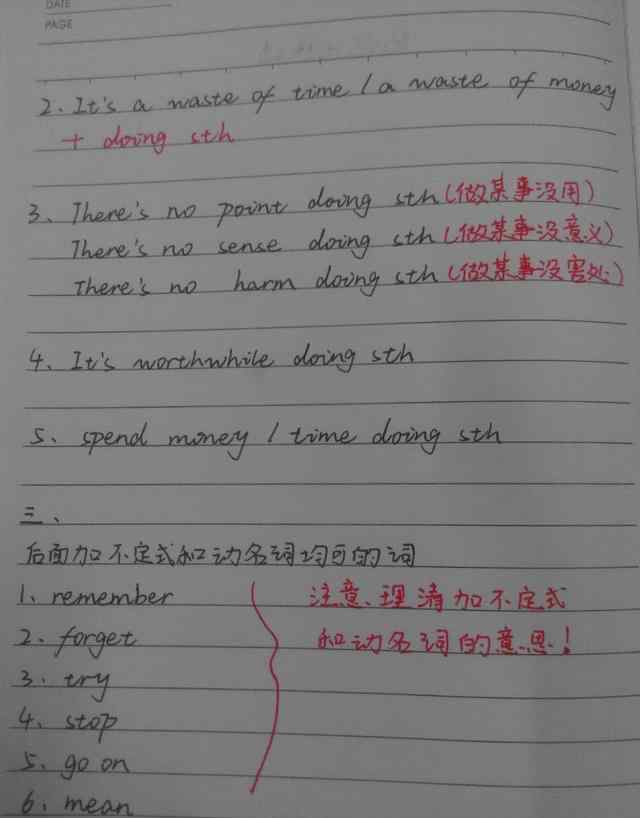 DATE
PAGE
2. It's a waste of time / a waste of money
+ doing sth
3、There's no point doing sth (做某事没用)
There's no sense doing sth (做某事没意义)
There's no harm doing sth (做某事没害处)
4、It's worthwhile doing sth
5、spend money / time doing sth
三、
后面加不定式和动名词均可的词
1、remember
注意、理清加不定式
2、forget
和动名词的意思！
3、try
4、stop
5、go on
6、mean